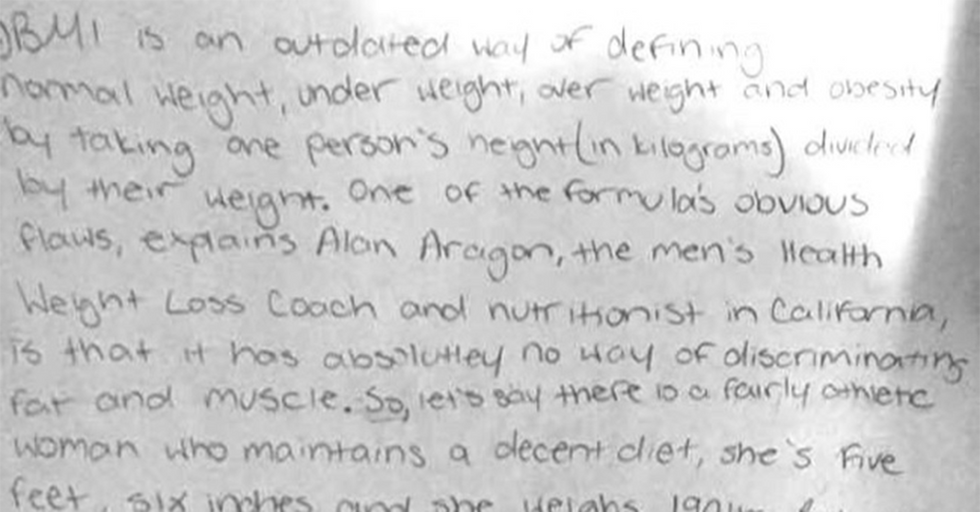 BMI is an outdated way of defining
normal weight, under weight, over weight and obesity
by taking one person's height (in kilograms) divided
by their weight. One of the formula's obvious
flaws, explains Alan Aragon, the men's Health
Weight Loss Coach and nutritionist in California,
is that it has absolutley no way of discriminating
fat and muscle. So, let's say there is a fairly athletc
woman who maintains a decent diet, she's five
feet, six inches and she weighs